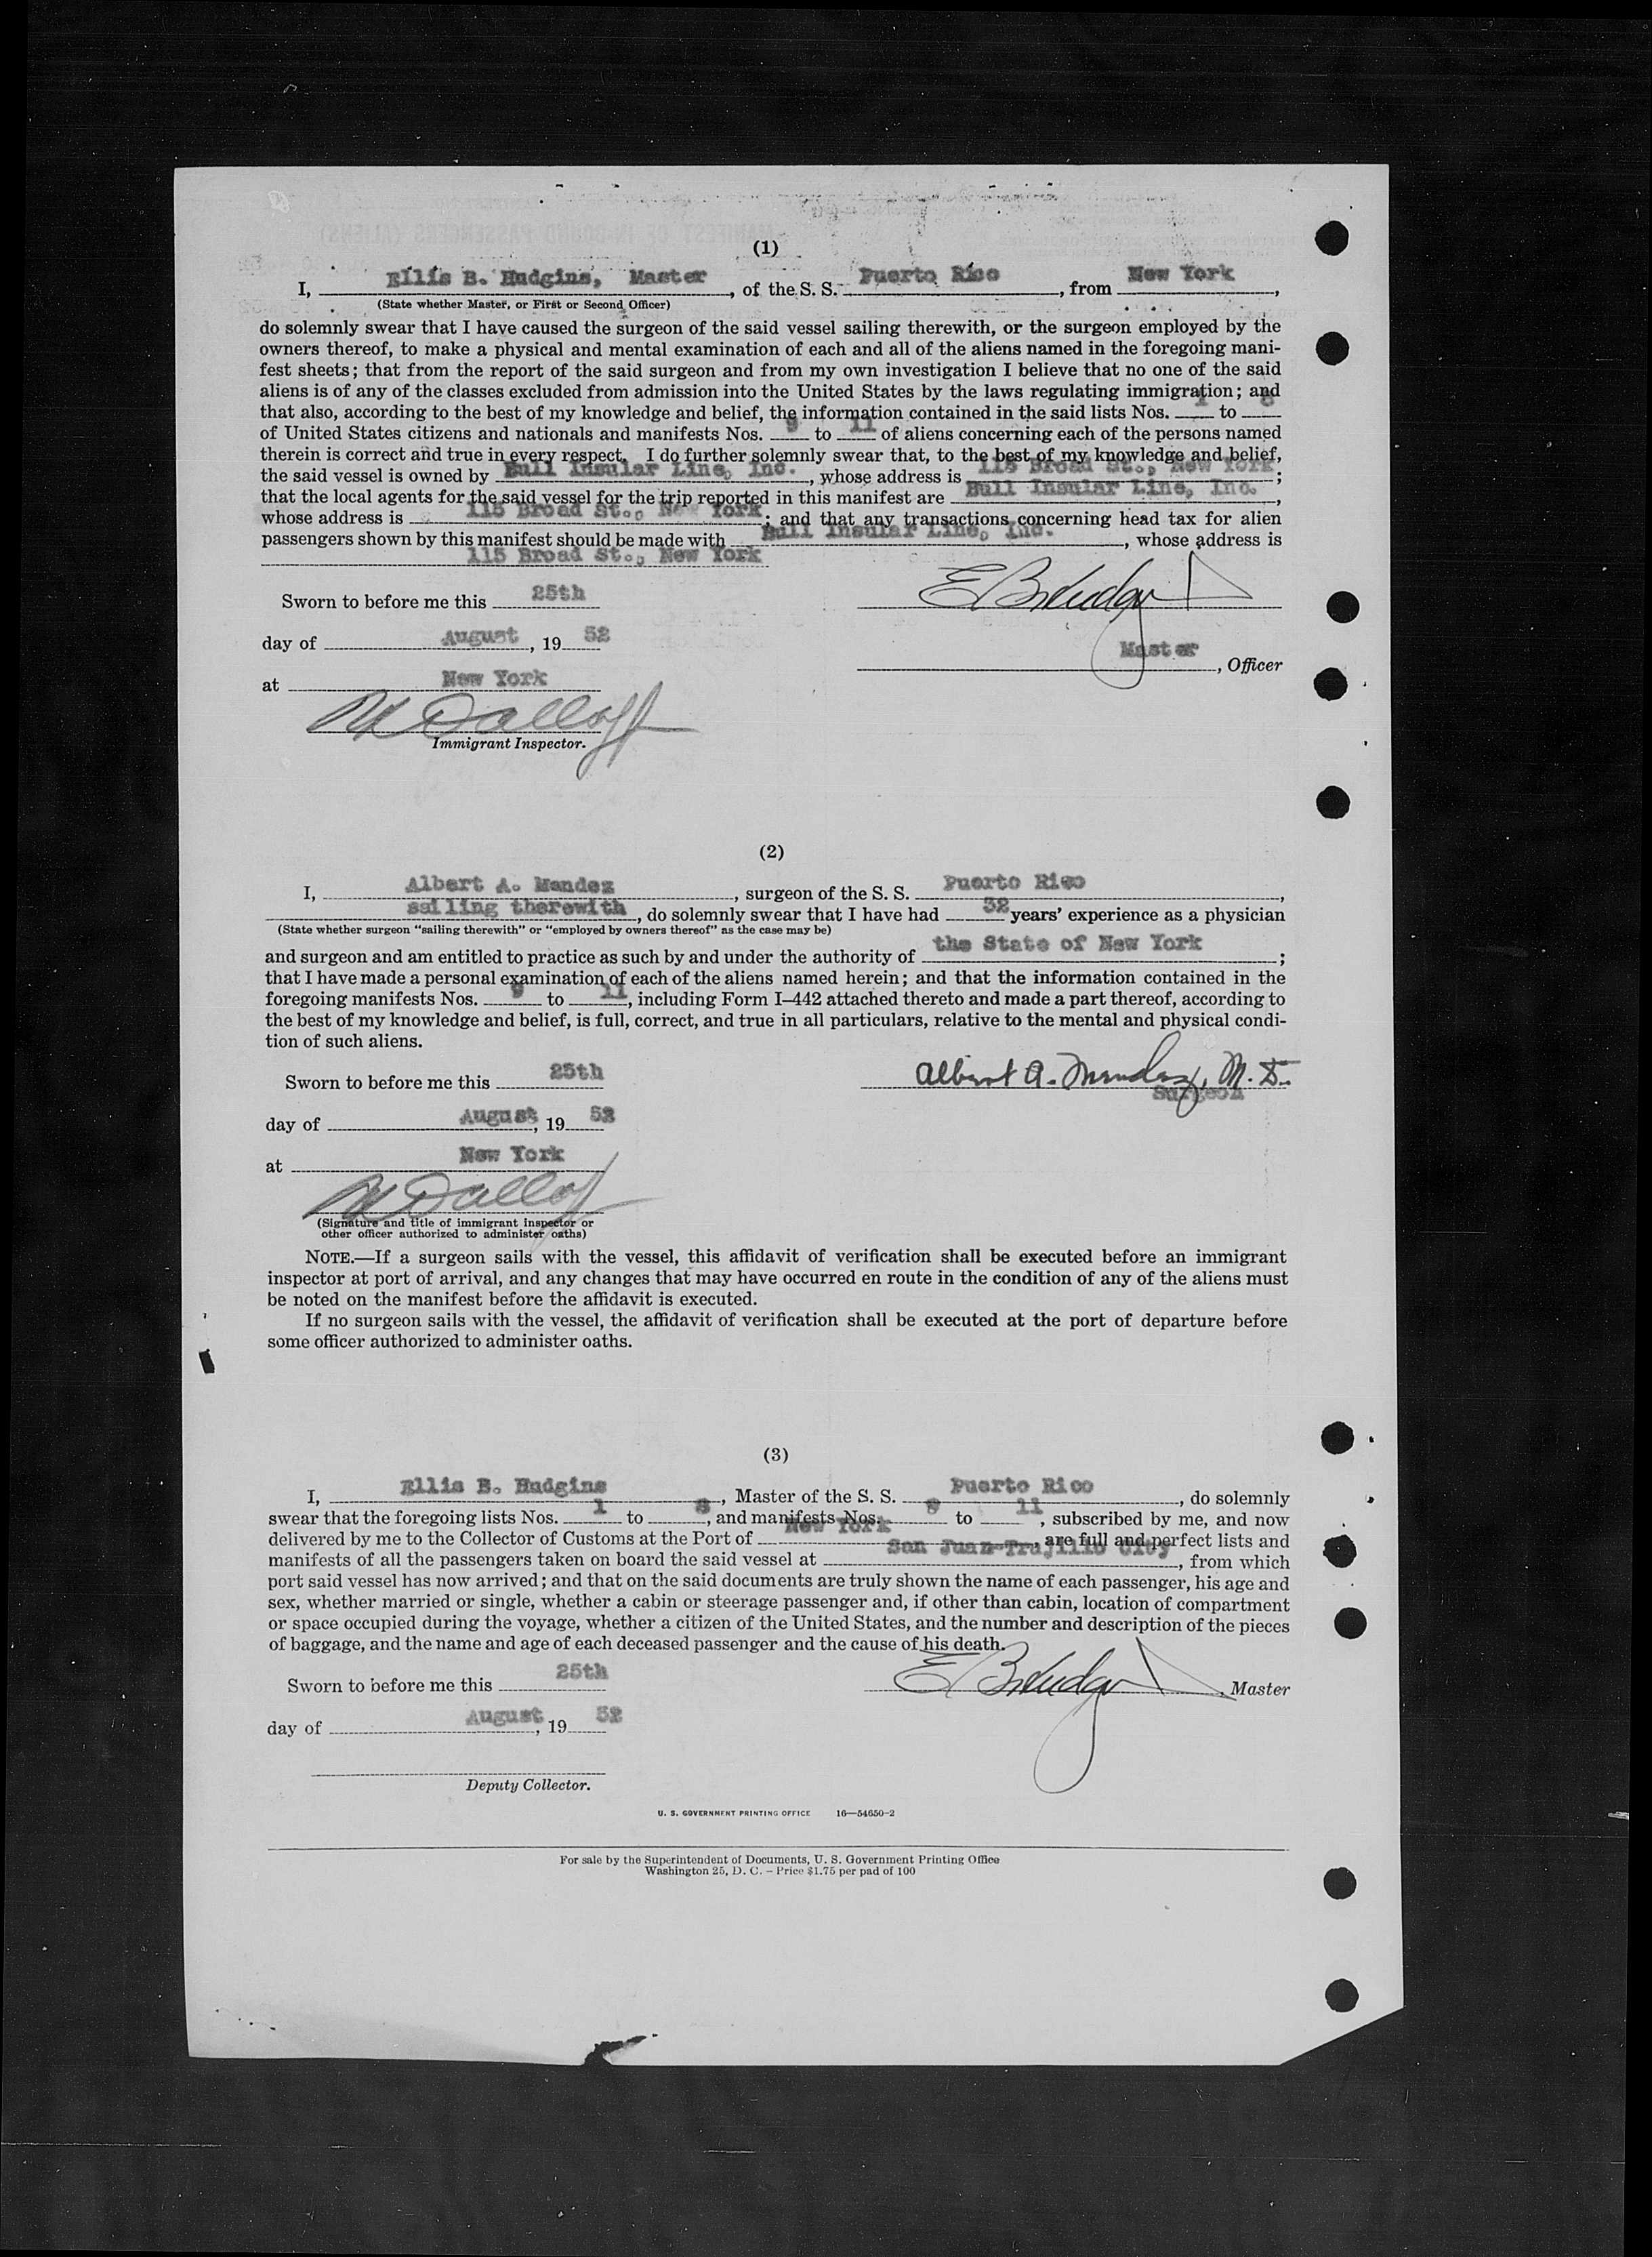 (1)
I, Ellis B. Hudgins, Master, of the S. S. Puerto Rico, from New York,
(State whether Master, or First or Second Officer)
do solemnly swear that I have caused the surgeon of the said vessel sailing therewith, or the surgeon employed by the
owners thereof, to make a physical and mental examination of each and all of the aliens named in the foregoing mani-
fest sheets; that from the report of the said surgeon and from my own investigation I believe that no one of the said
aliens is of any of the classes excluded from admission into the United States by the laws regulating immigration; and
that also, according to the best of my knowledge and belief, the information contained in the said lists Nos. 1 to 8
of United States citizens and nationals and manifests Nos. 9 to 11 of aliens concerning each of the persons named
therein is correct and true in every respect. I do further solemnly swear that, to the best of my knowledge and belief,
the said vessel is owned by Bull Insular Line, Inc., whose address is 115 Broad St., New York;
that the local agents for the said vessel for the trip reported in this manifest are Bull Insular Line, Inc.,
whose address is 115 Broad St., New York; and that any transactions concerning head tax for alien
passengers shown by this manifest should be made with Bull Insular Line, Inc., whose address is
115 Broad St., New York
Sworn to before me this 25th
day of August, 19 52
Master, Officer
at New York
Immigrant Inspector.
(2)
I, Albert A. Mendez, surgeon of the S. S. Puerto Rico,
sailing therewith, do solemnly swear that I have had 32 years' experience as a physician
(State whether surgeon "sailing therewith" or "employed by owners thereof" as the case may be)
and surgeon and am entitled to practice as such by and under the authority of the State of New York;
that I have made a personal examination of each of the aliens named herein; and that the information contained in the
foregoing manifests Nos. 9 to 11, including Form I–442 attached thereto and made a part thereof, according to
the best of my knowledge and belief, is full, correct, and true in all particulars, relative to the mental and physical condi-
tion of such aliens.
Sworn to before me this 25th
Albert A. Mendez, M. D.
Surgeon
day of August, 19 52
at New York
(Signature and title of immigrant inspector or
other officer authorized to administer oaths)
NOTE.—If a surgeon sails with the vessel, this affidavit of verification shall be executed before an immigrant
inspector at port of arrival, and any changes that may have occurred en route in the condition of any of the aliens must
be noted on the manifest before the affidavit is executed.
If no surgeon sails with the vessel, the affidavit of verification shall be executed at the port of departure before
some officer authorized to administer oaths.
(3)
I, Ellis B. Hudgins, Master of the S. S. Puerto Rico, do solemnly
swear that the foregoing lists Nos. 1 to 8, and manifests Nos. 9 to 11, subscribed by me, and now
delivered by me to the Collector of Customs at the Port of New York, are full and perfect lists and
manifests of all the passengers taken on board the said vessel at San Juan-Trujillo City, from which
port said vessel has now arrived; and that on the said documents are truly shown the name of each passenger, his age and
sex, whether married or single, whether a cabin or steerage passenger and, if other than cabin, location of compartment
or space occupied during the voyage, whether a citizen of the United States, and the number and description of the pieces
of baggage, and the name and age of each deceased passenger and the cause of his death.
Sworn to before me this 25th
, Master
day of August, 19 52
Deputy Collector.
U. S. GOVERNMENT PRINTING OFFICE 16—54650-2
For sale by the Superintendent of Documents, U. S. Government Printing Office
Washington 25, D. C. - Price $1.75 per pad of 100